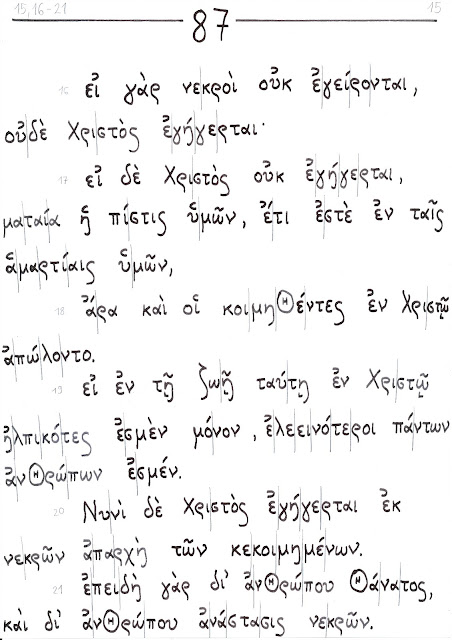 15,16-21 87 15
16 εἰ γὰρ νεκροὶ οὐκ ἐγείρονται,
οὐδὲ Χριστὸς ἐγήγερται·
17 εἰ δὲ Χριστὸς οὐκ ἐγήγερται,
ματαία ἡ πίστις ὑμῶν, ἔτι ἐστὲ ἐν ταῖς
ἁμαρτίαις ὑμῶν,
18 ἄρα καὶ οἱ κοιμηθέντες ἐν Χριστῷ
ἀπώλοντο.
19 εἰ ἐν τῇ ζωῇ ταύτῃ ἐν Χριστῷ
ἠλπικότες ἐσμὲν μόνον, ἐλεεινότεροι πάντων
ἀνθρώπων ἐσμέν.
20 Νυνὶ δὲ Χριστὸς ἐγήγερται ἐκ
νεκρῶν ἀπαρχὴ τῶν κεκοιμημένων.
21 ἐπειδὴ γὰρ δι' ἀνθρώπου θάνατος,
καὶ δι' ἀνθρώπου ἀνάστασις νεκρῶν.